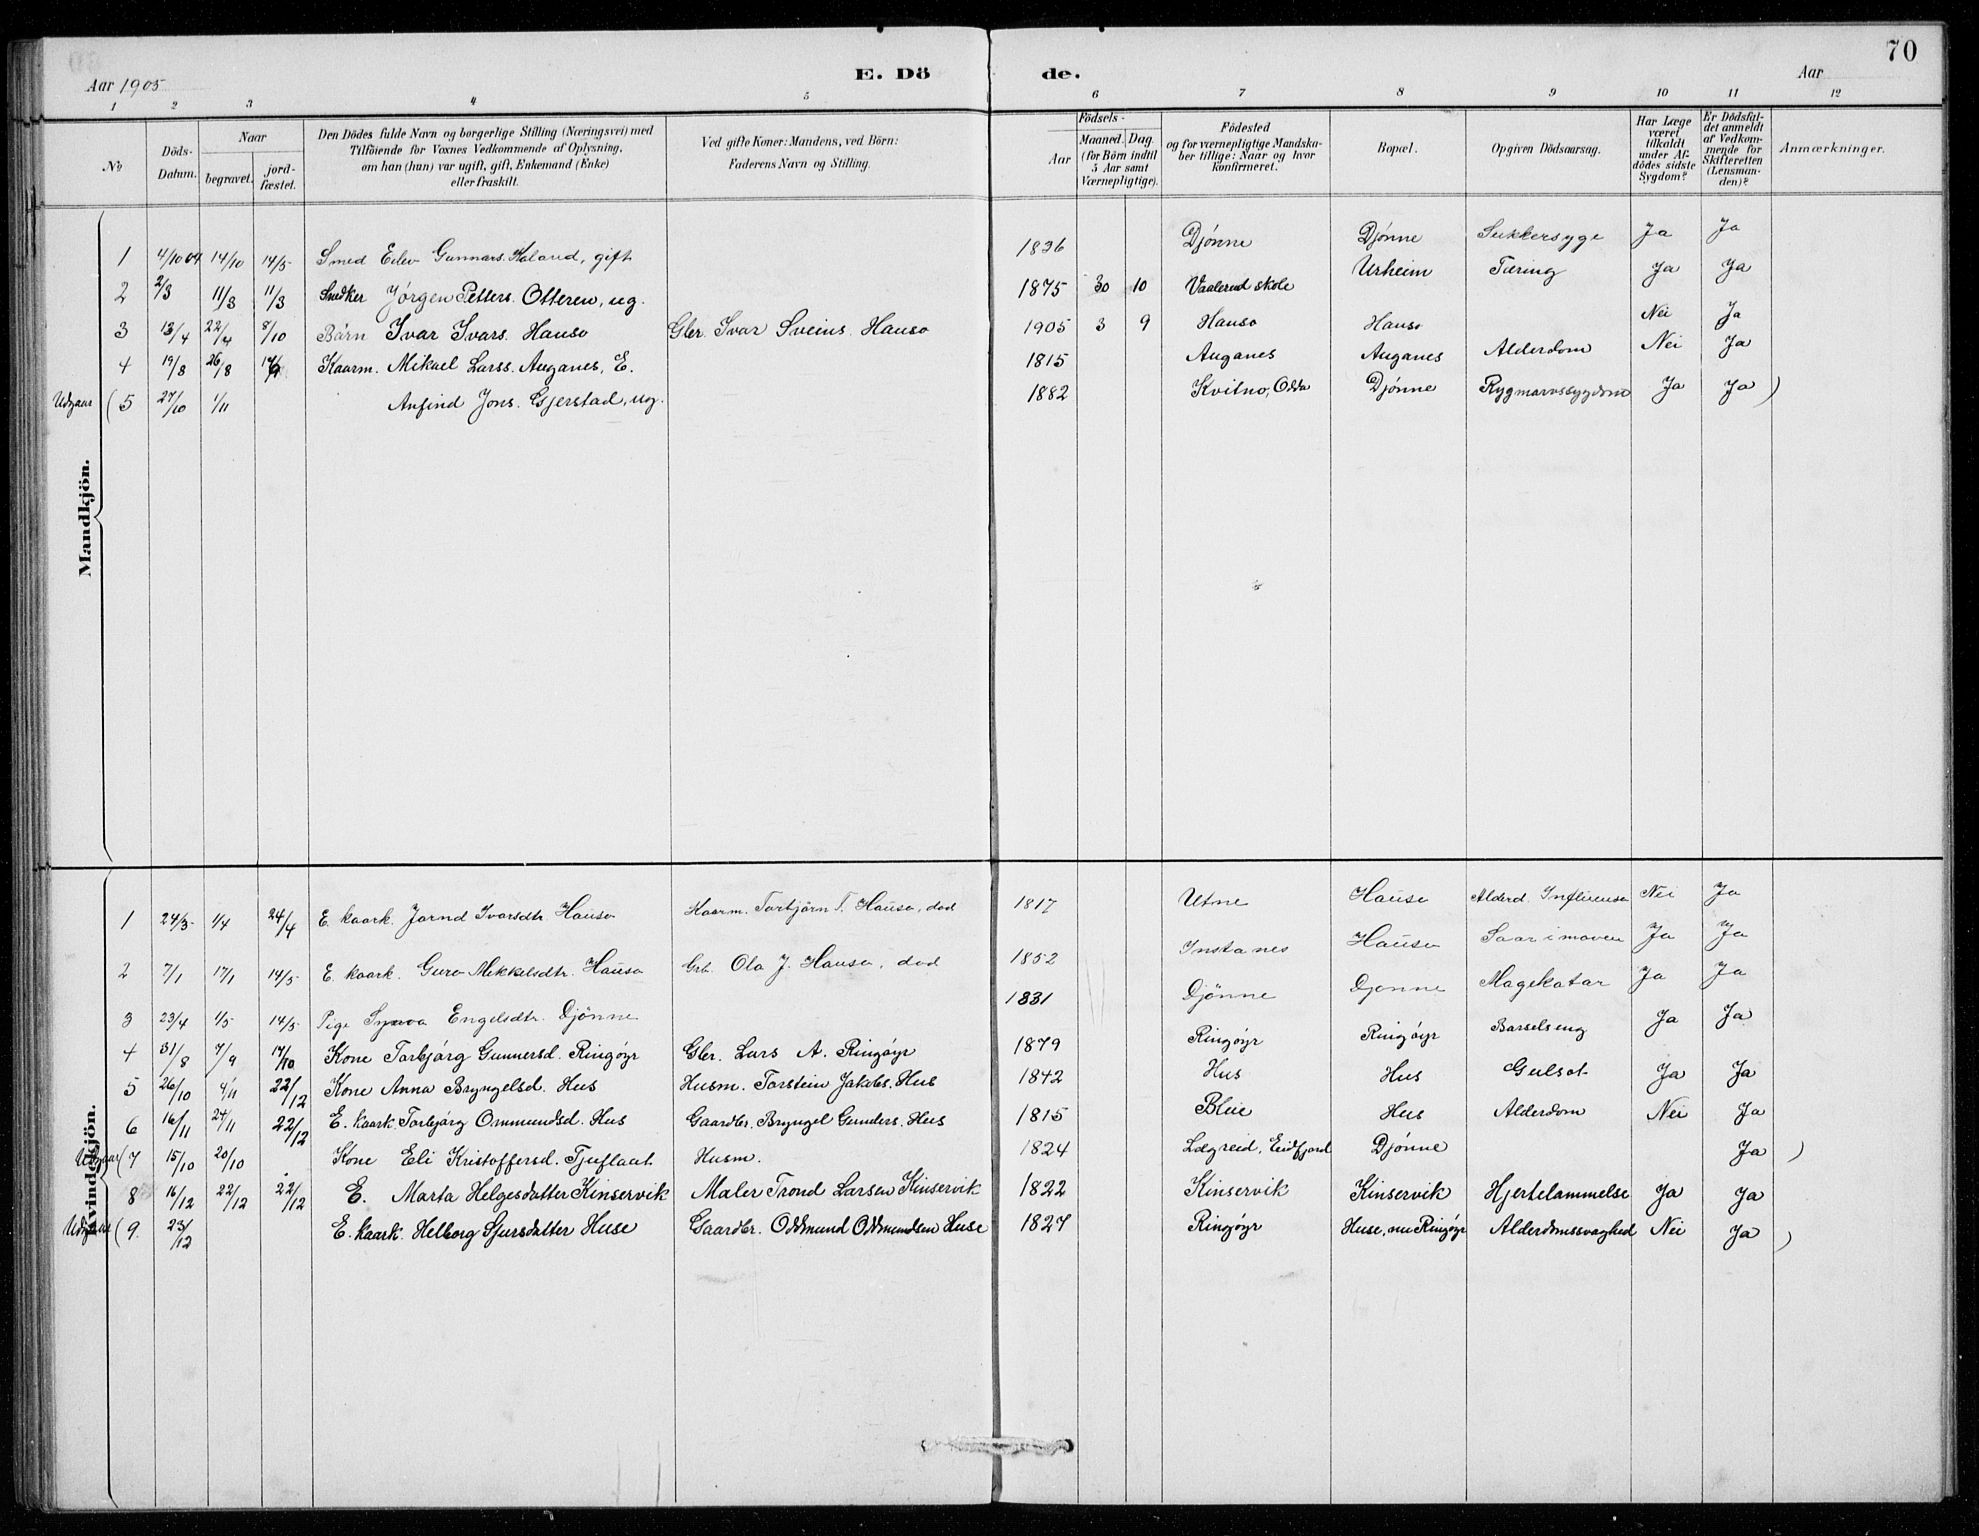 70
Aar 1905 E. Dö de. Aar
1 2 3 4 5 6 7 8 9 10 11 12
No Döds-Datum. Naar begravet. jordfæstet. Den Dödes fulde Navn og borgerlige Stilling (Næringsvei) med Tilföiende for Voxnes Vedkommende af Oplysning, om han (hun) var ugift, gift, Enkemand (Enke) eller fraskilt. Ved gifte Koner: Mandens, ved Börn: Faderens Navn og Stilling. Födsels- Aar Maaned. Dag. (for Börn indtil 5 Aar samt Værnepligtige). Födested og for værnepligtige Mandskaber tillige: Naar og hvor konfirmeret. Bopæl. Opgiven Dödsaarsag. Har Læge været tilkaldt under Afdödes sidste Sygdom? Er Dödsfaldet anmeldt af Vedkommende for Skifteretten (Lensmanden)? Anmærkninger.
Mandkjön.
1 4/10 04 14/10 14/5 Smed Eilev Gunnars. Haland, gift 1836 Djönne Djönne Sukkersyge Ja Ja
2 2/3 11/3 11/3 Snedker Jörgen Petters. Otteren, ug. 1875 30 10 Vaalerud skole Urheim Tæring Ja Ja
3 13/4 22/4 8/10 Barn Ivar Ivars. Hauso Gbr. Ivar Sveins. Hauso 1905 3 9 Hauso Hauso Nei Ja
4 19/8 26/8 Kaarm. Mikael Larss. Auganes, E. 1815 Auganes Auganes Alderdom Nei Ja
Udgaar (5 27/10 1/11 Anfind Jons. Gjerstad, ug. 1882 Kvitno, Odda Djönne Rygmarvssygdom Ja Ja )
Kvindekjön.
1 24/3 1/4 24/4 E. kaark. Jorand Ivarsdtr. Hauso Kaarm. Torbjörn T. Hauso, död 1817 Utne Hauso Alderd. Influensa Nei Ja
2 7/1 17/1 14/5 E. kaark. Guro Mikkelsdtr. Hauso Grb. Ola J. Hauso, död 1852 Instanes Hauso Saar i maven Ja Ja
3 23/4 1/5 14/5 Pige Synva Engelsdtr. Djönne 1831 Djönne Djönne Magekatar Ja Ja
4 31/8 7/9 17/10 Kone Torbjörg Gunnersd. Ringöyr Gbr. Lars A. Ringöyr 1879 Ringöyr Ringöyr Barselseng Ja Ja
5 26/10 4/11 22/12 Kone Anna Bryngelsd. Hus Husm. Torstein Jakobs. Hus 1842 Hus Hus Gulsot Ja Ja
6 16/11 24/11 22/12 E. kaark. Torbjörg Ommundsd. Hus Gaardbr. Bryngel Gunders. Hus 1815 Bleie Hus Alderdom Nei Ja
Udgaar (7 15/10 20/10 Kone Eli Kristoffersd. Tjuflaat Husm. 1824 Lægreid, Eidfjord Djönne Ja )
8 16/12 22/12 22/12 E. Marta Helgesdatter Kinservik Maler Trond Larsen Kinservik 1822 Kinservik Kinservik Hjertelammelse Ja Ja
Udgaar (9. 23/12 E. kaark. Helborg Sjursdatter Huse Gaardbr. Oddmund Oddmundsen Huse 1827 Ringöyr Huse, nu Ringöyr Alderdomssvaghed Nei Ja )